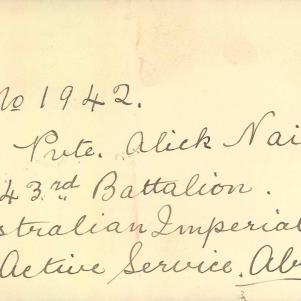 No 1942.
Pvte. Alick Nai
43rd Battalion.
stralian Imperial
Active Service. Ab